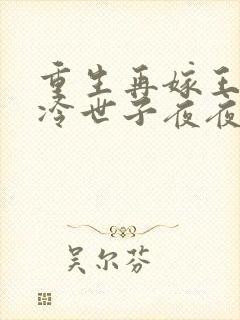 重生再嫁王
冷世子夜夜
吴尔芬